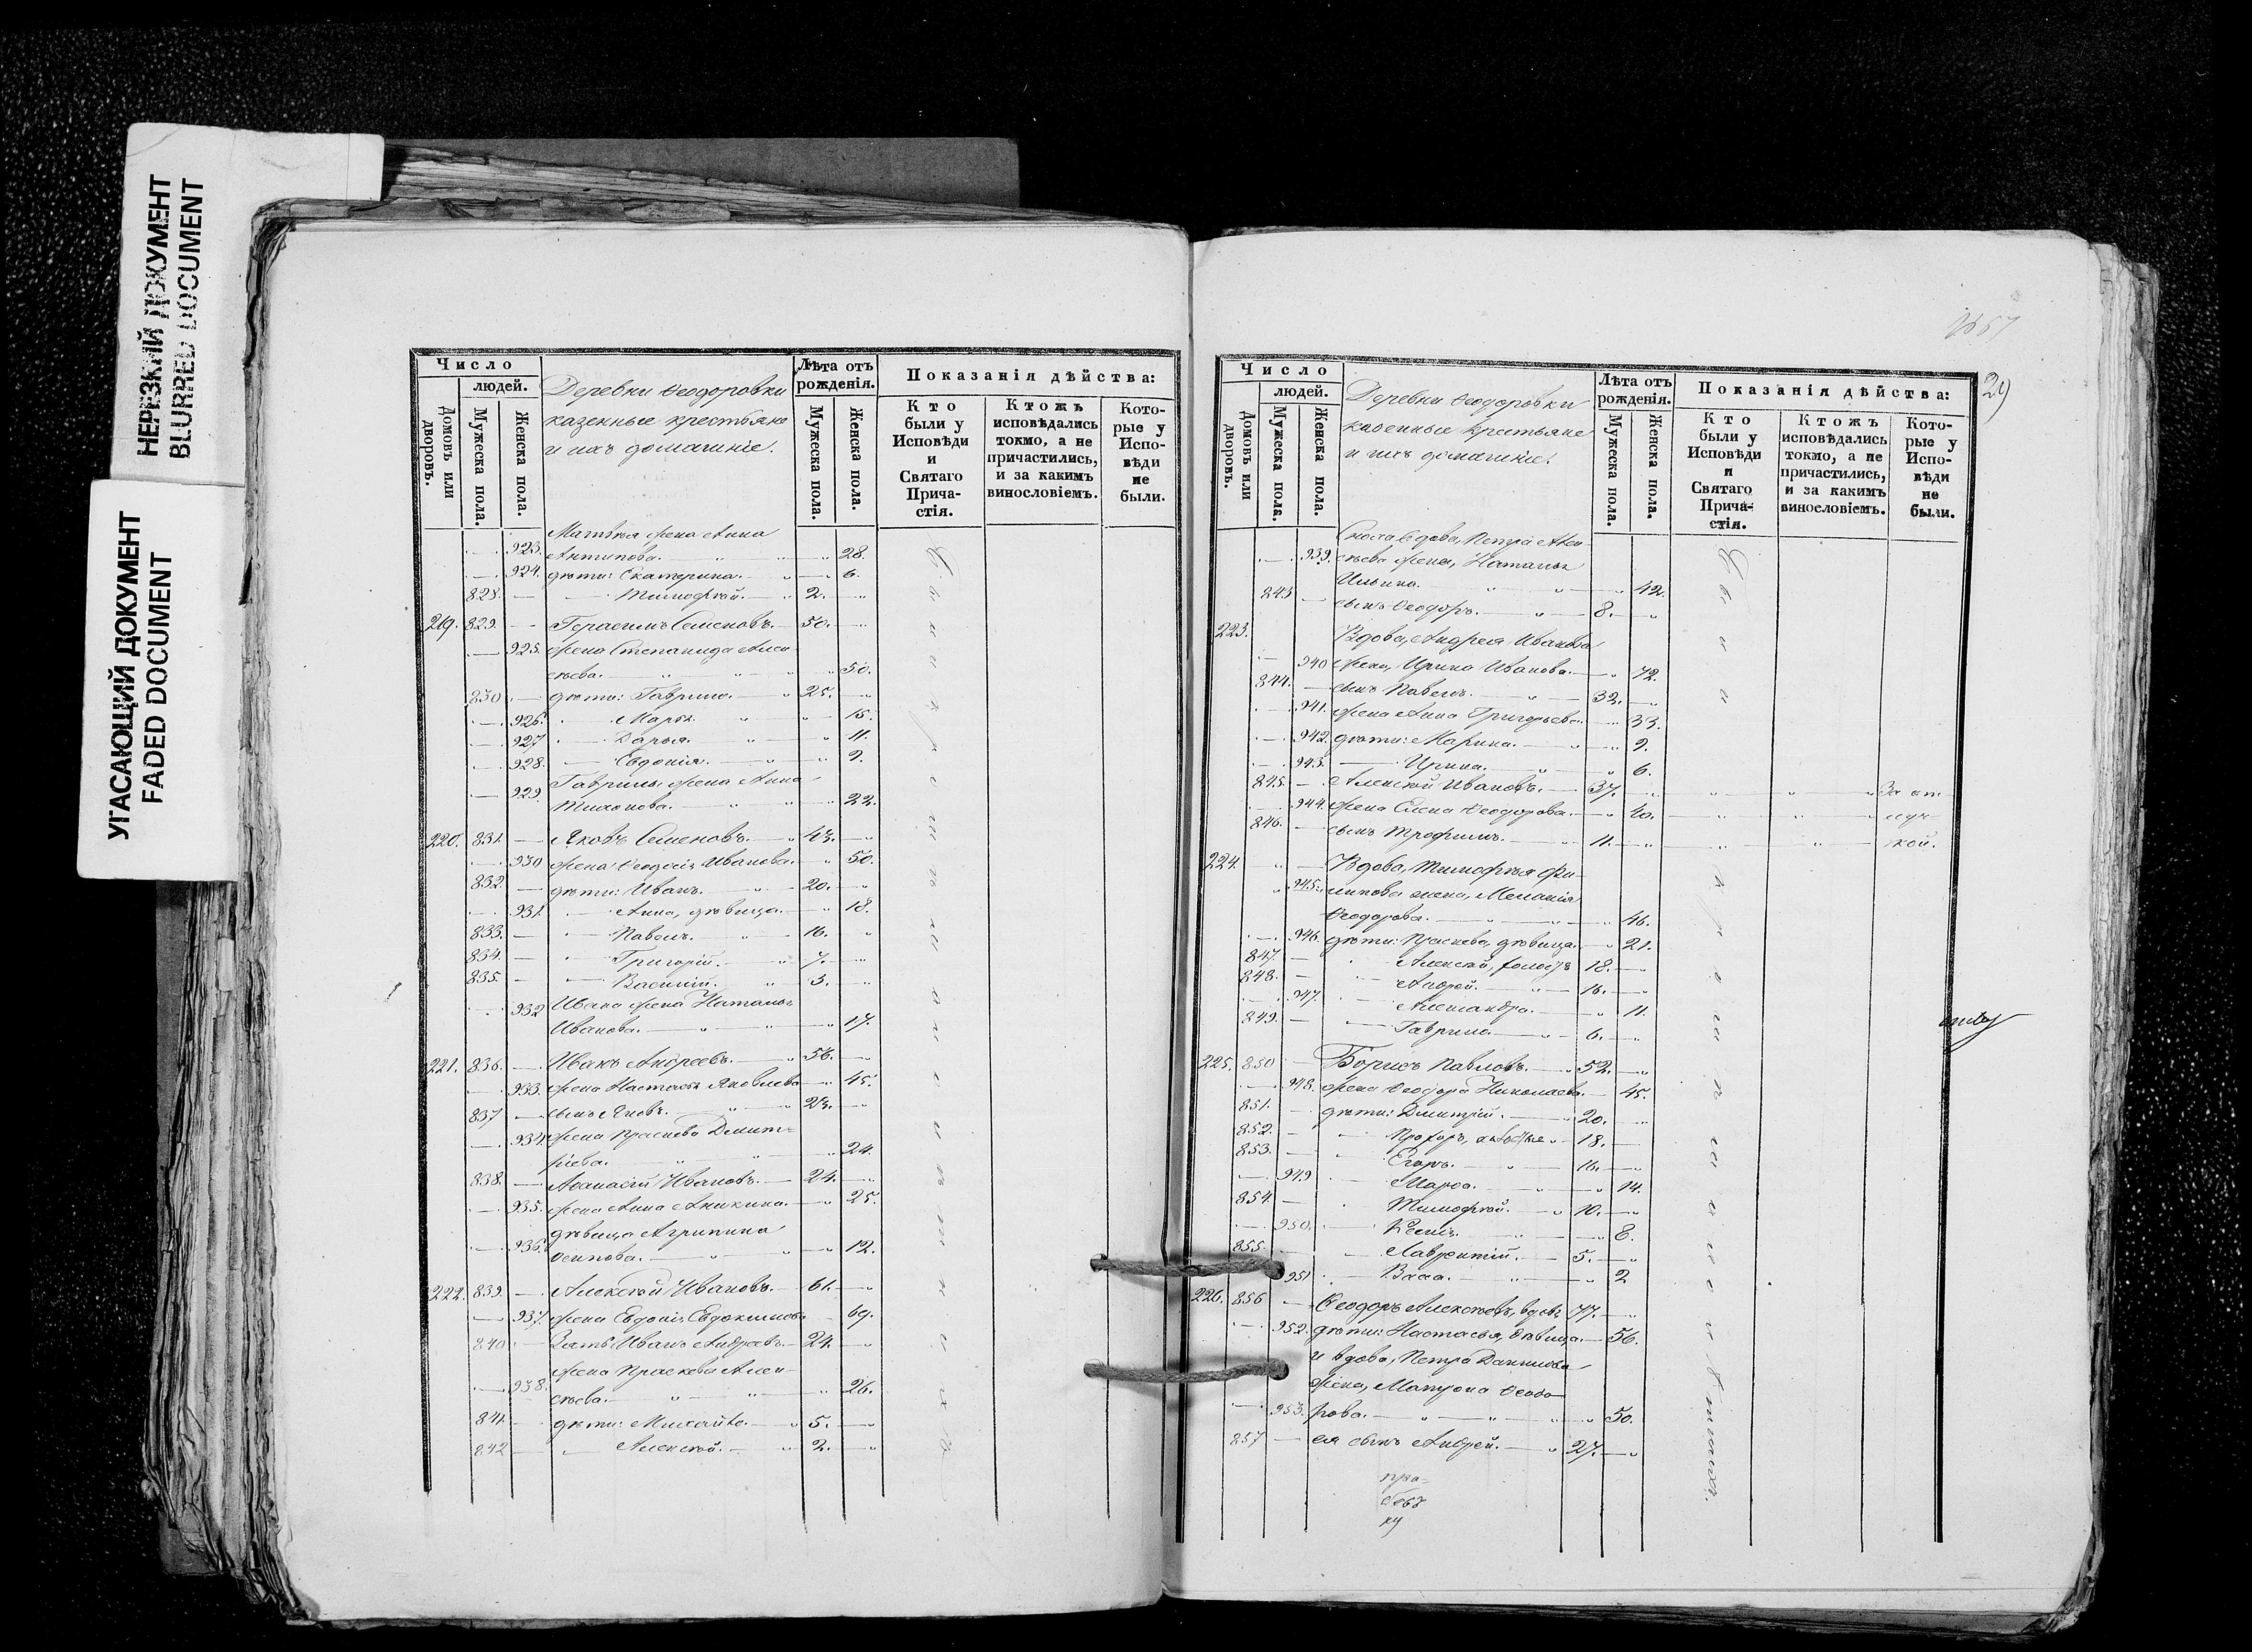 НЕРЕЗКИЙ ДОКУМЕНТ
BLURRED DOCUMENT
УГАСАЮЩИЙ ДОКУМЕНТ
FADED DOCUMENT
Число
людей.
Домовъ или дворовъ.
Мужеска пола.
Женска пола.
Деревни Ѳеодоровки
казенные крестьяне
и ихъ домашніе.
Лѣта отъ рожденія.
Мужеска пола.
Женска пола.
Показанія дѣйства:
Кто были у Исповѣди и Святаго Причастія.
Ктожъ исповѣдались токмо, а не причастились, и за какимъ винословіемъ.
Которые у Исповѣди не были.
Матвѣя жена Анна
923. Антипова. 28.
924. дѣти: Екатерина. 6.
828. Тимофей. 2.
219. 829. Герасимъ Семеновъ. 50.
925. жена Степанида Алек-
сѣева. 50.
830 дѣти: Гаврило. 25.
926. Марья. 15.
927 Дарья. 11.
928. Евдокія. 9.
Гаврилы жена Анна
929. Тихонова. 22.
220. 831. Яковъ Семеновъ. 43.
930 жена Ѳеодосія Иванова. 50.
832. дѣти: Иванъ. 20.
931. Анна, дѣвица. 18.
833. Павелъ. 16.
834. Григорій. 7.
835. Василій. 3.
932 Ивана жена Наталья
Иванова. 17.
221. 836. Иванъ Андреевъ. 56.
933. жена Настасья Яковлева 45.
837 сынъ Яковъ. 23.
934. жена Праскева Димит-
ріева. 24.
838. Аѳанасій Ивановъ. 24.
935. жена Анна Аникина. 25.
дѣвица Агрипина
936. Осипова. 12.
222. 839. Алексѣй Ивановъ. 61.
937. жена Евдокія Евдокимова 69.
840 Зять Иванъ Андреевъ. 24.
жена Праскева Алек-
938. сѣева. 26.
841. дѣти: Михайло. 5.
842 Алексѣй. 2.
29
Число
людей.
Домовъ или дворовъ.
Мужеска пола.
Женска пола.
Деревни Ѳеодоровки
казенные крестьяне
и ихъ домашніе.
Лѣта отъ рожденія.
Мужеска пола.
Женска пола.
Показанія дѣйства:
Кто были у Исповѣди и Святаго Причастія.
Ктожъ исповѣдались токмо, а не причастились, и за какимъ винословіемъ.
Которые у Исповѣди не были.
Сноха вдова, Петра Алек-
939. сѣева жена, Наталья
Ильина. 42.
843 сынъ Ѳеодоръ. 8.
223. Вдова, Андрея Иванова
940 жена, Ирина Иванова. 72.
844. сынъ Павелъ. 32.
941. жена Анна Григорьева. 33.
942. дѣти: Марина. 9.
943. Ирина. 6.
845. Алексѣй Ивановъ. 37. За от
944. жена Елена Ѳеодорова. 40. луч-
846. сынъ Трофимъ. 11. кой.
224. Вдова, Тимофея Фи-
945. липова жена, Меланія
Ѳеодорова. 46.
946. дѣти: Праскева, дѣвица. 21.
847. Алексѣй, холостъ 18.
848. Андрей. 16.
947. Александра. 11.
849. Гаврило. 6.
225. 850 Борисъ Павловъ. 52.
948. жена Ѳеодора Николаева. 45.
851. дѣти: Димитрій. 20.
852. Прохоръ, 18.
853. Егоръ. 16.
949 Марѳа. 14.
854. Тимофей. 10.
950. 8.
855. Лаврентій. 5.
951 Васса. 2
226. 856 Ѳеодоръ Алексѣевъ, вдовъ 77.
952. дѣти: Настасья, дѣвица. 56.
и вдова, Петра Данилова
жена, Матрона Ѳеодо-
953. рова. 50.
857 ея сынъ Андрей. 27.